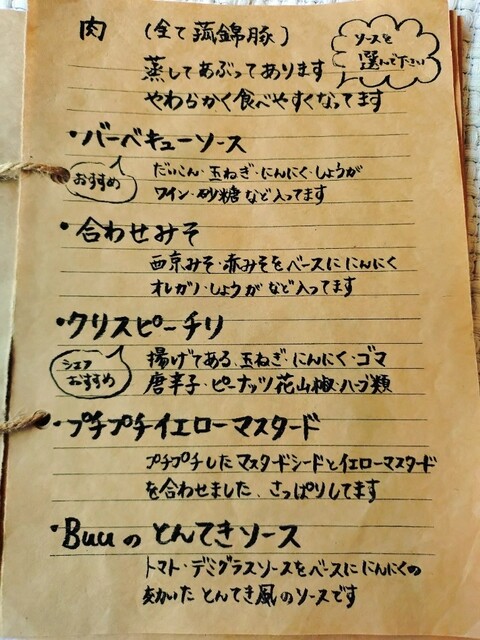 肉 (全て菰錦豚)
ソースを
選んで下さい
蒸してあぶってあります
やわらかく食べやすくなってます
・バーベキューソース
おすすめ
だいこん・玉ねぎ・にんにく・しょうが
ワイン・砂糖など入ってます
・合わせみそ
西京みそ・赤みそをベースににんにく
オレガノ・しょうがなど入ってます
・クリスピーチリ
シェフ
おすすめ
揚げてある、玉ねぎ・にんにく・ゴマ
唐辛子・ピーナッツ花山椒・ハーブ類
・プチプチイエローマスタード
プチプチしたマスタードシードとイエローマスタード
を合わせました、さっぱりしてます
・Buuのとんてきソース
トマト・デミグラスソースをベースににんにくの
効いたとんてき風のソースです